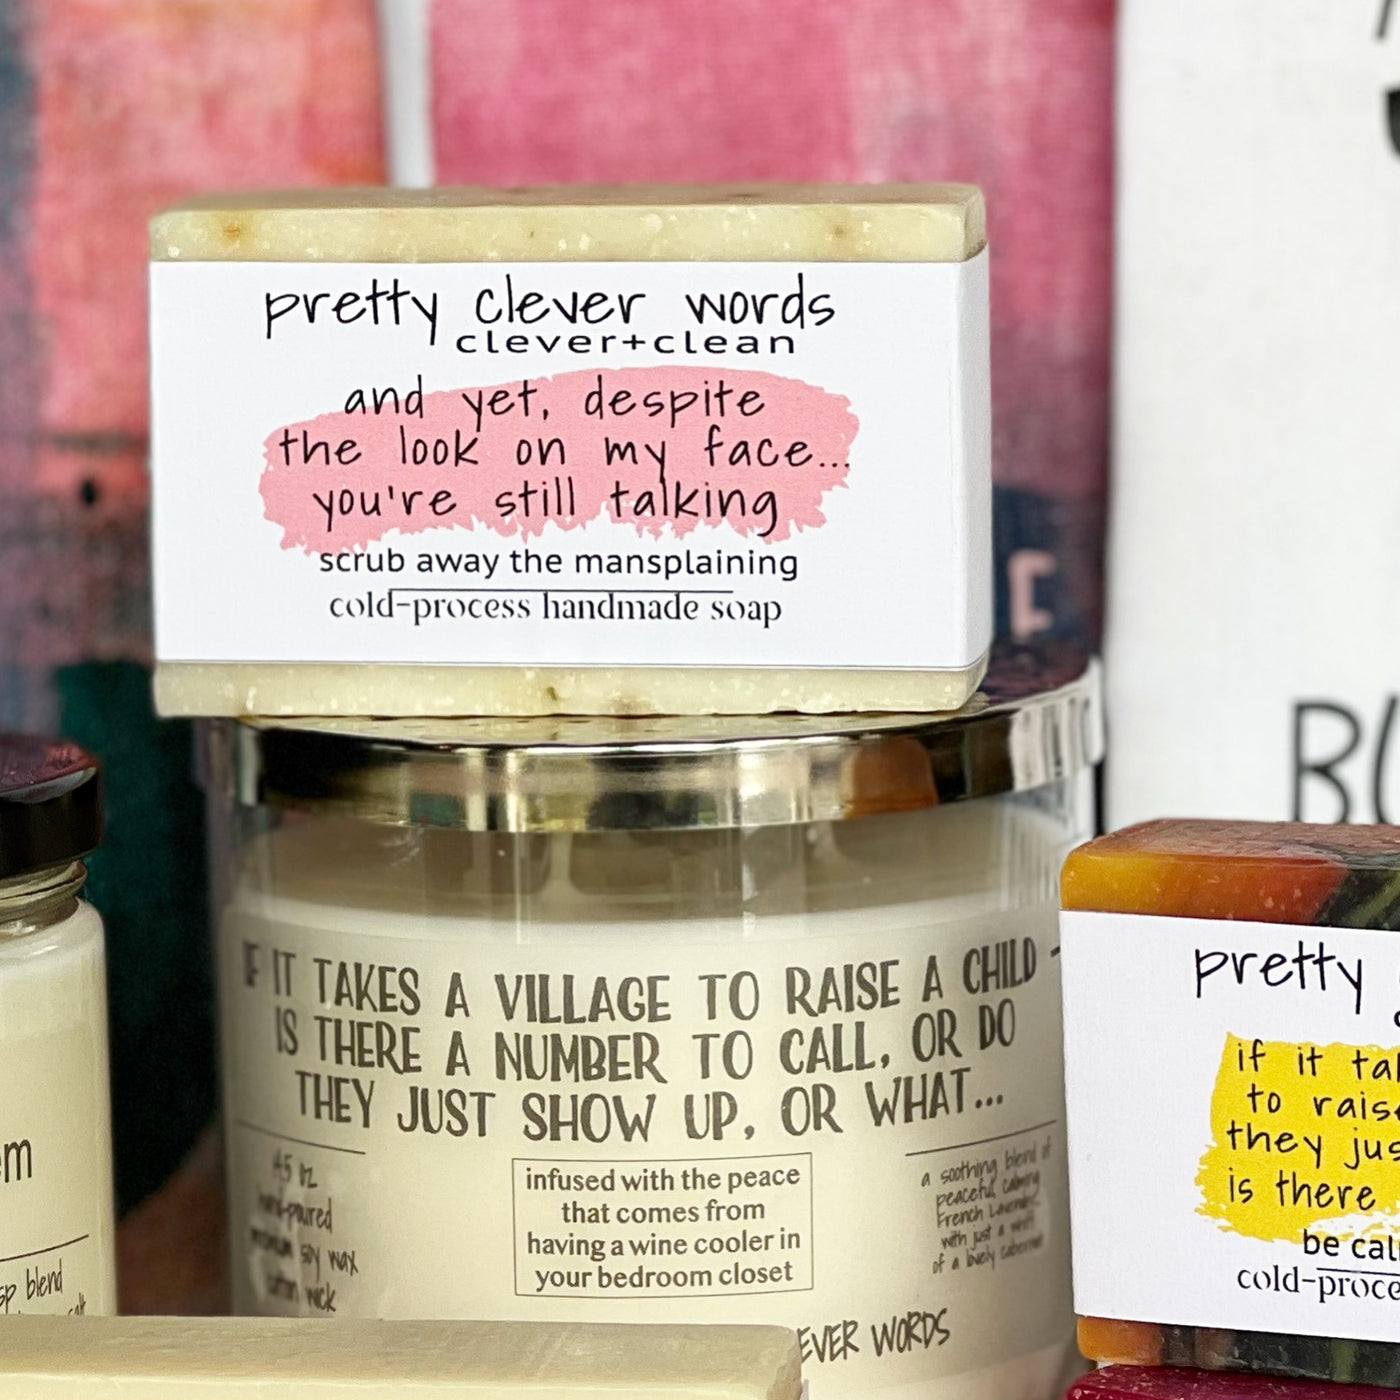 pretty clever words
clever+clean
and yet, despite
the look on my face...
you're still talking
scrub away the mansplaining
cold-process handmade soap
IF IT TAKES A VILLAGE TO RAISE A CHILD -
IS THERE A NUMBER TO CALL, OR DO
THEY JUST SHOW UP, OR WHAT...
infused with the peace
that comes from
having a wine cooler in
your bedroom closet
a soothing blend of
peaceful, calming
French Lavender
with just a whiff
of a lovely cabernet
oz
hand-poured
premium soy wax
cotton wick
EVER WORDS
em
sp blend
salt
BU
pretty
if it tak
to raise
they jus
is there
be cal
cold-proce